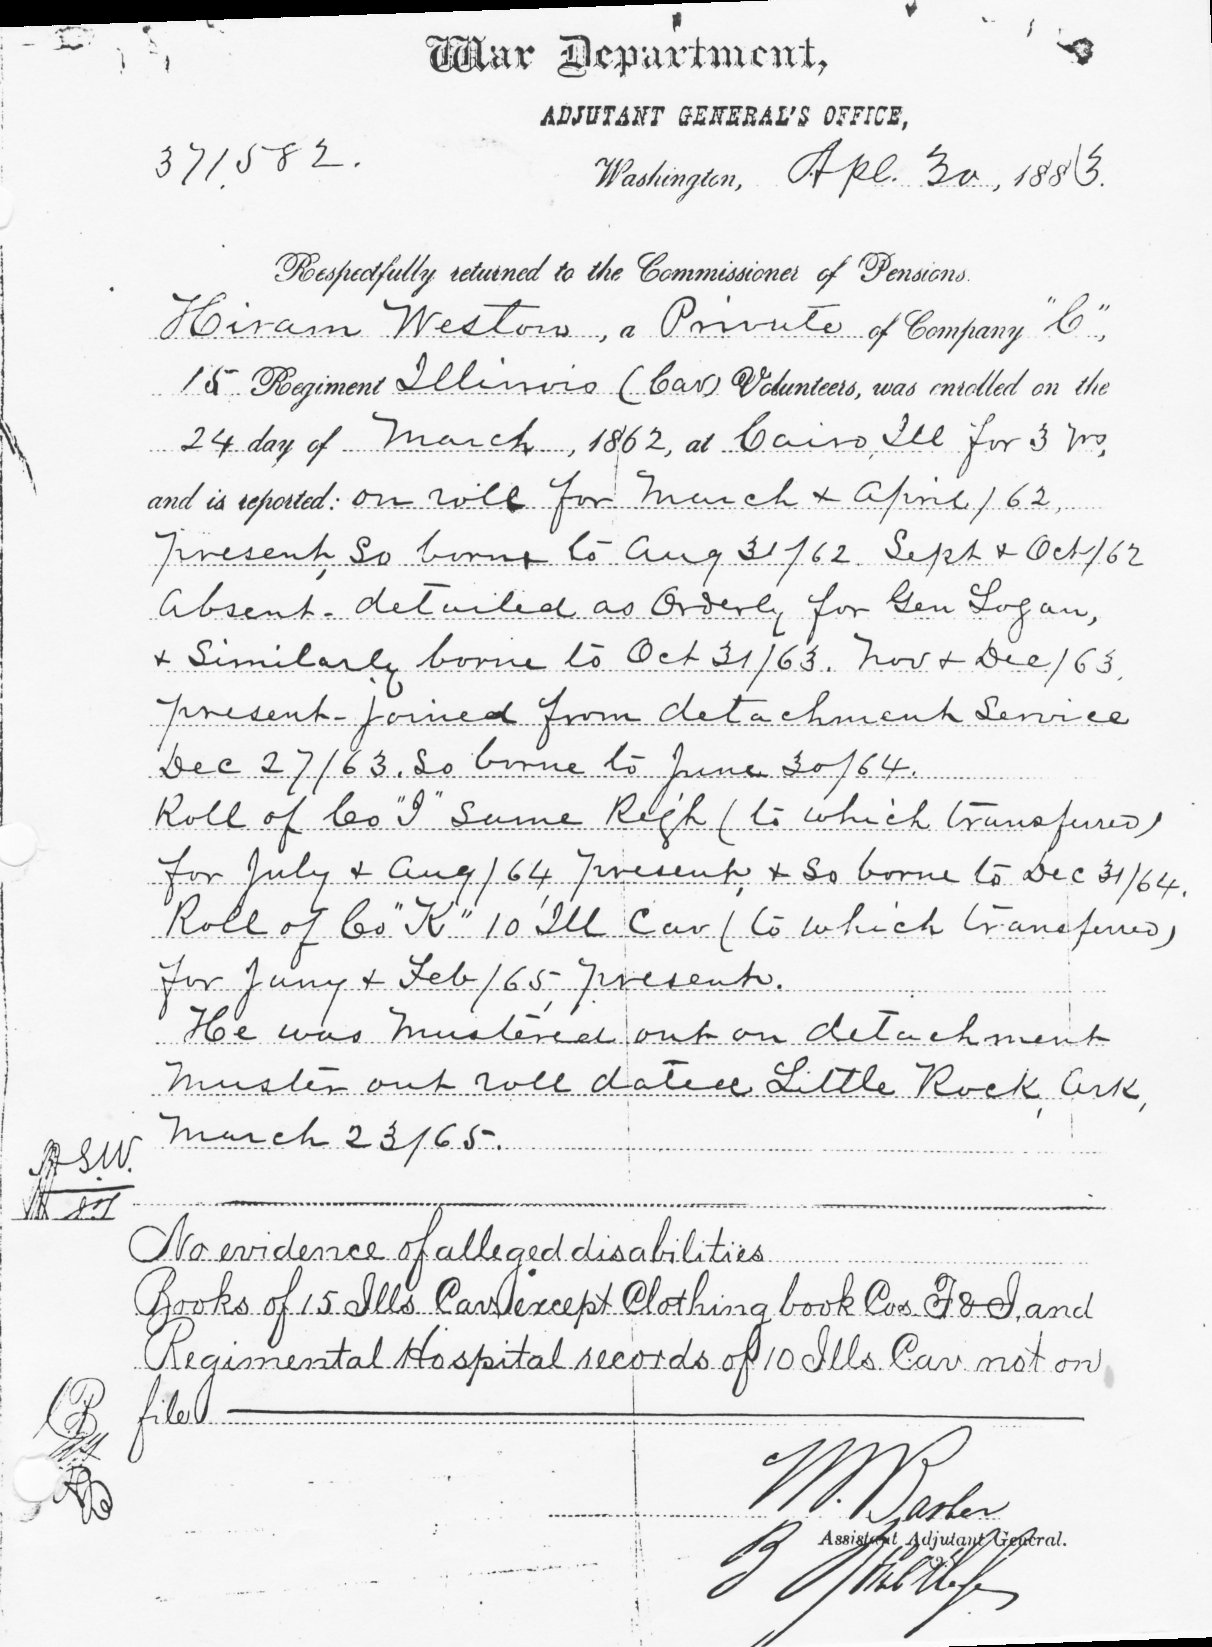 War Department,
ADJUTANT GENERAL'S OFFICE,
371,582.
Washington, Apl. 30, 1883.
Respectfully returned to the Commissioner of Pensions.
Hiram Weston, a Private of Company "C",
15 Regiment Illinois (Cav) Volunteers, was enrolled on the
24 day of March, 1862, at Cairo, Ill for 3 yrs,
and is reported: on roll for March & April/62,
present, So borne to Aug 31/62. Sept & Oct/62
Absent - detailed as Orderly for Gen Logan,
& Similarly borne to Oct 31/63. Nov & Dec/63,
present - joined from detachment Service
Dec 27/63. So borne to June 30/64.
Roll of Co "I" Same Regt (to which transferred)
for July & Aug/64, present, & So borne to Dec 31/64.
Roll of Co "K" 10 Ill Cav (to which transferred)
for Jany & Feb/65, present.
He was Mustered out on detachment
Muster out roll dated Little Rock, Ark,
March 23/65.
S.W.
No evidence of alleged disabilities
Books of 15 Ills Cav (except Clothing book Cos F & I, and
Regimental Hospital records of 10 Ills Cav not on
file
Assistant Adjutant General.